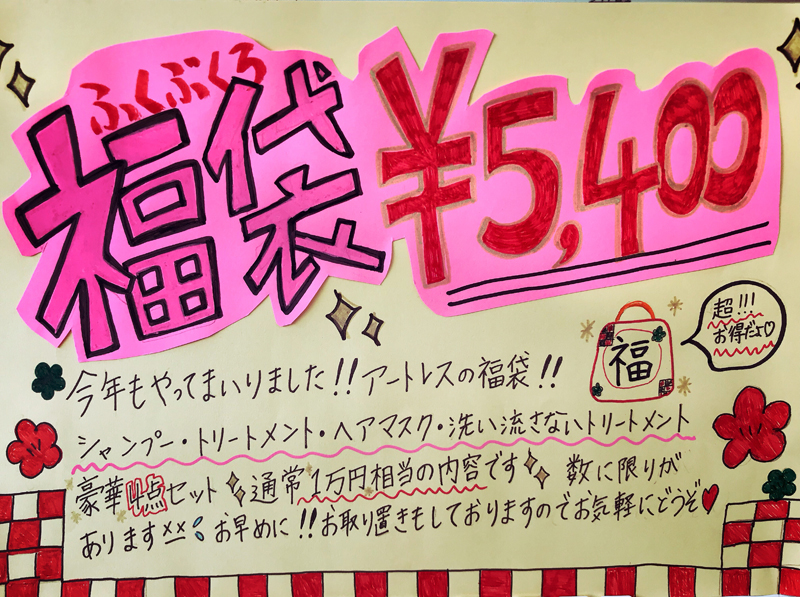 ふくぶくろ
福袋 ¥5,400
超!!!
お得だよ♡
福
今年もやってまいりました!!アートレスの福袋!!
シャンプー・トリートメント・ヘアマスク・洗い流さないトリートメント
豪華4点セット 通常1万円相当の内容です 数に限りが
あります×× お早めに!!お取り置きもしておりますのでお気軽にどうぞ♥